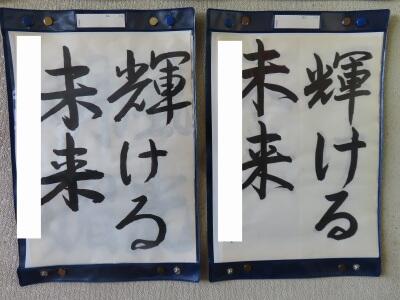 輝ける
未来
輝ける
未来